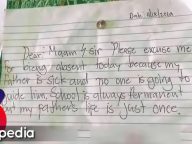 Dear Maam & Sir Please excuse me
for being absent today because my
father is sick and no one is going to
School is always permanent
but my father's life is just once.
pedia